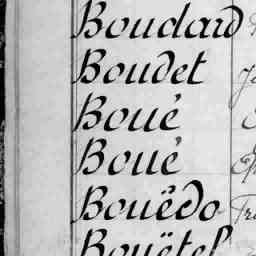 Boudard
Boudet
Boué
Boué
Bouëdo
Bouëtel